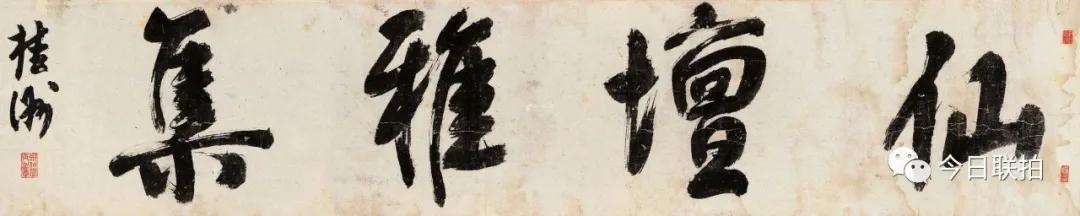 仙壇雅集
桂洲
今日联拍